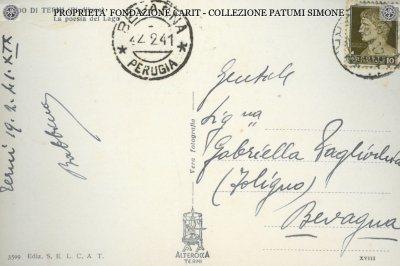 PROPRIETA' FONDAZIONE CARIT - COLLEZIONE PATUMI SIMONE
La poesia del Lago
BEVAGNA
2.41
* PERUGIA *
10
Terni 19.2.41.XIX
Babbino
Gentile
Sig.na
Gabriella
(Foligno)
Bevagna
Vera fotografia
ALTEROCCA
TERNI
3500 Ediz. S. E. L. C. A. T.
XVIII